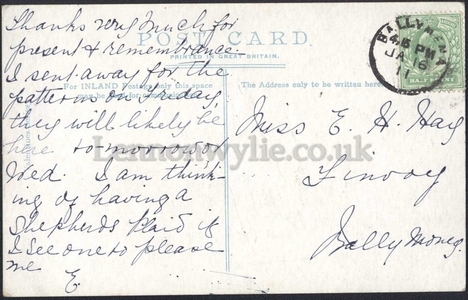 Thanks very much for
present & remembrance.
I sent away for the
pattern on Friday,
they will likely be
here to-morrow
Wed. I am think-
ing of having a
Shepherds Plaid if
I see one to please
me
E.
POST CARD.
PRINTED IN GREAT BRITAIN.
For INLAND Postage only this space
The Address only to be written here.
BALLYMENA
4.15 PM
JA 16
11
Miss E. H. Hay
Finvoy
Ballymoney